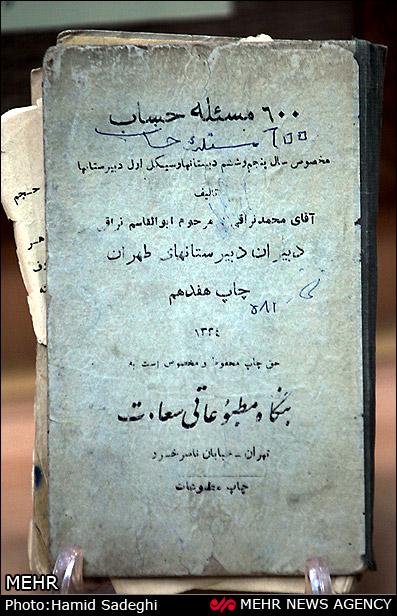 ۶۰۰ مسئله حساب
۶۰۰ مسئله حساب
مخصوص سال پنجم و ششم دبستانها و سیکل اول دبیرستانها
تالیف
آقای محمد نراقی و مرحوم ابوالقاسم نراقی
دبیران دبیرستانهای طهران
چاپ هفدهم
۱۳۲۴
حق چاپ محفوظ و مخصوص است به
بنگاه مطبوعاتی سعادت
تهران - خیابان ناصرخسرو
چاپ مطبوعات
حجم
هر
MEHR
Photo:Hamid Sadeghi
MEHR NEWS AGENCY